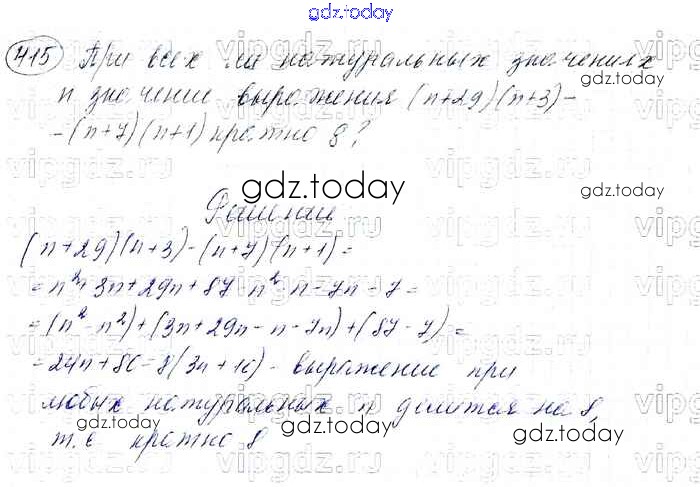 gdz.today
415 При всех ли натуральных значениях
gdz.today
n значение выражения (n+29)(n+3)-
-(n+7)(n+1) кратно 8?
gdz.today
gdz.today
Решение
(n+29)(n+3)-(n+7)(n+1)=
=n²+3n+29n+87-n²-n-7n-7=
=(n²-n²)+(3n+29n-n-7n)+(87-7)=
=24n+80=8(3n+10) - выражение при
любых натуральных n делится на 8,
т.е кратно 8
gdz.today
gdz.today